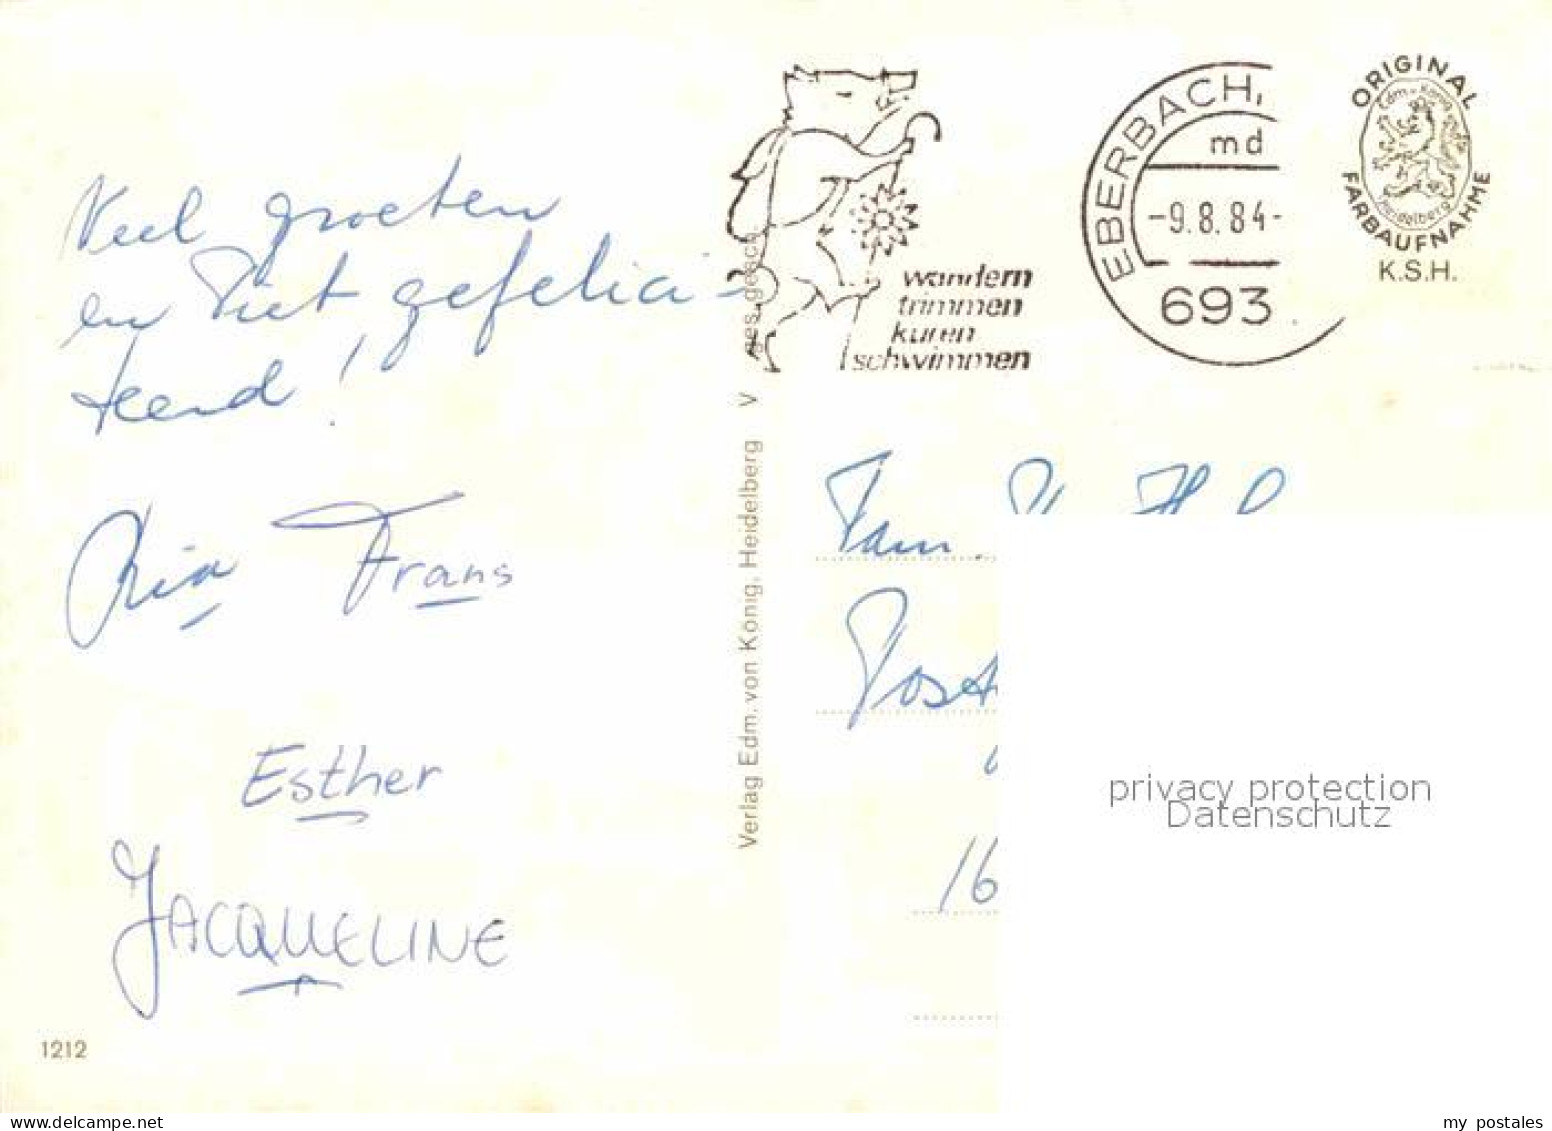 Veel groeten
en Piet gefelici-
teerd!
Ria Frans
Esther
JACQUELINE
1212
Verlag Edm. von König, Heidelberg V ges. gesch.
wandern
trimmen
kuren
schwimmen
EBERBACH,
md
-9.8.84-
693
ORIGINAL
Edm. v. König
Heidelberg
FARBAUFNAHME
K.S.H.
Fam.
Post
16
privacy protection
Datenschutz
my postales